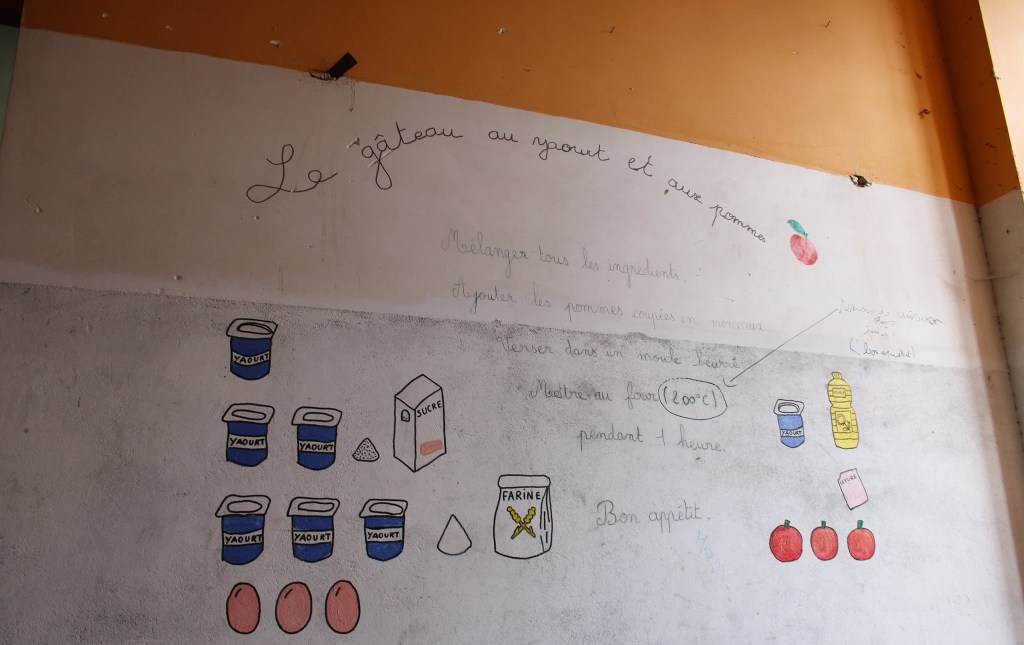 Le gâteau au yaourt et aux pommes
Mélanger tous les ingrédients.
Ajouter les pommes coupées en morceaux
Verser dans un moule beurré
Mettre au four (200°C)
pendant 1 heure.
Bon appétit.
YAOURT
YAOURT YAOURT SUCRE
YAOURT YAOURT YAOURT FARINE
YAOURT
LEVURE